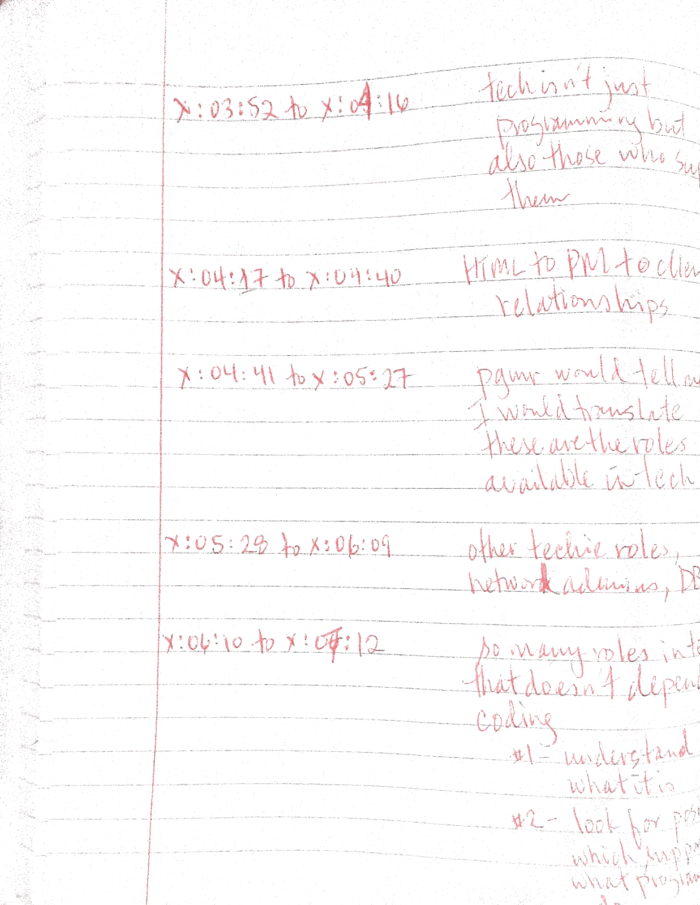 x:03:52 to x:04:16 tech isn't just
programming but
also those who su
them
x:04:17 to x:04:40 HTML to PM to clien
relationships
x:04:41 to x:05:27 pgmr would tell
I would translate
these are the roles
available in tech
x:05:28 to x:06:09 other techie roles,
network admins, DB
x:06:10 to x:07:12 so many roles in te
that doesn't depen
coding
#1 - understand
what it is
#2 - look for pos
which supp
what program